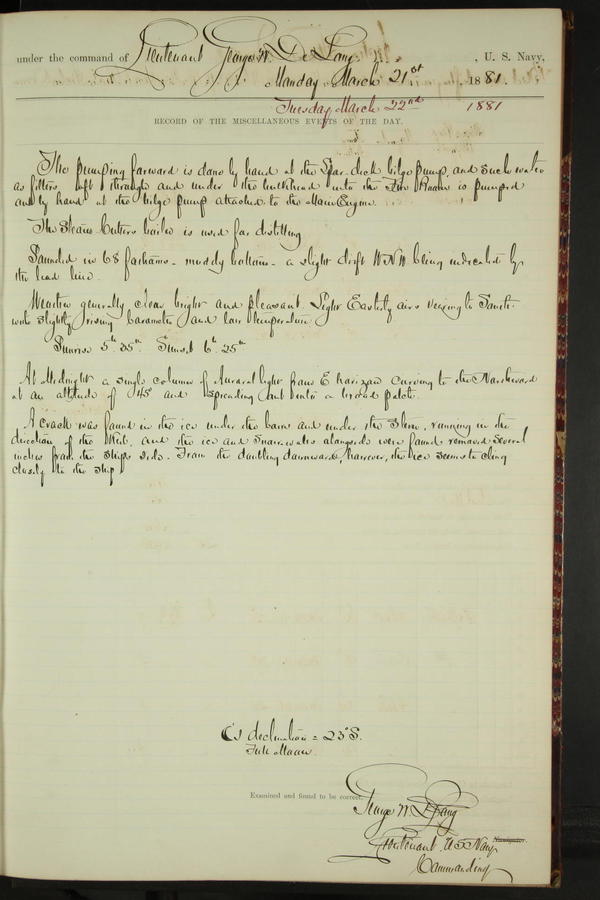 under the command of Lieutenant George W. De Long, U. S. Navy,
Monday March 21st, 1881.
Tuesday March 22nd 1881
RECORD OF THE MISCELLANEOUS EVENTS OF THE DAY.
The pumping forward is done by hand at the Spar-deck bilge pump, and such water
as filters aft through and under the bulkhead into the Fire Room is pumped
out by hand at the bilge pump attached to the Main Engine.
The Steam Cutters boiler is used for distilling
Sounded in 68 fathoms - muddy bottom - a slight drift WNW being indicated by
the lead line.
Weather generally clear bright and pleasant. Light Easterly airs veering to South-
with slightly rising barometer and low temperature
Sunrise 5h 35m. Sunset 6h 25m
At Midnight a single column of Auroral light from E horizon curving to the Northward
at an altitude of 45° and spreading out into a broad patch.
A crack was found in the ice under the bows and under the Stem, running in the
direction of the Keel, and the ice and snow-water alongside were found removed several
inches from the ships side. From the doubling downwards, however, the ice seems to cling
closely to the ship
☾'s declination = 23° S.
Full Moon.
Examined and found to be correct.
George W. De Long
Lieutenant U.S. Navy Navigator.
Commanding